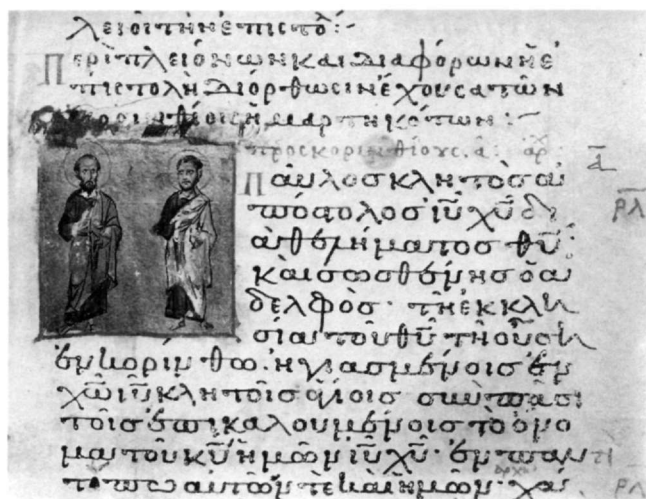 λειοι τὴν ἐπιστο:
Περὶ πλειόνων καὶ διαφόρων ἡ ἐ
πιστολὴ διόρθωσιν ἔχουσα τῶν
κορινθίοις ἡμαρτηκότων :
προς κορινθίους. α:
Παυλος κλητὸς ἀ
πόστολος ἰῡ χῡ δι
ὰ θελήματος θῡ
καὶ σωσθένης ὁ ἀ
δελφὸς· τῆ ἐκκλη
σία τοῦ θῡ τῆ οὔση
ἐν κορίνθω. ἡγιασμένοις ἐν
χω̄ ἰῡ κλητοῖς ἁγίοις σὺν πᾶσι
τοῖς ἐπικαλουμένοις τὸ ὄνο
μα τοῦ κῡ ἡμῶν ἰῡ χῡ· ἐν παντὶ
τόπω αὐτῶν τε καὶ ἡμῶν· χά